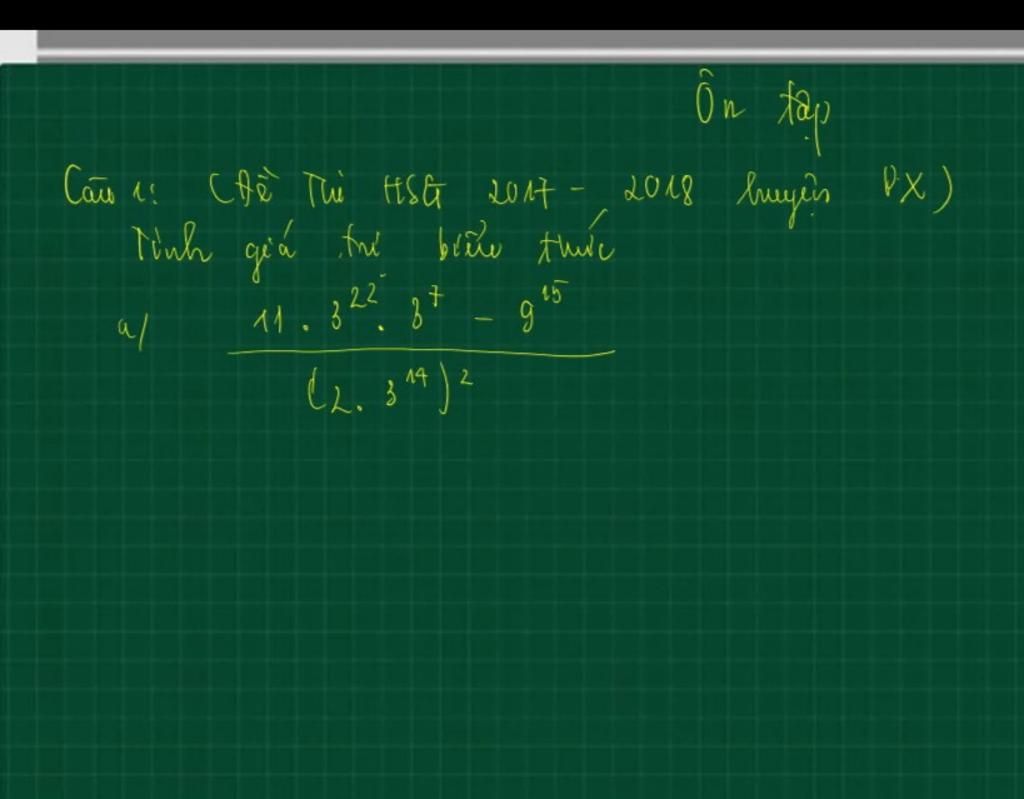 Ôn tập
Câu 1: (Đề Thi HSG 2017 - 2018 huyện VX)
Tính giá trị biểu thức
a/ \frac{11 . 3^{22} . 3^7 - 9^{15}}{(2 . 3^{14})^2}